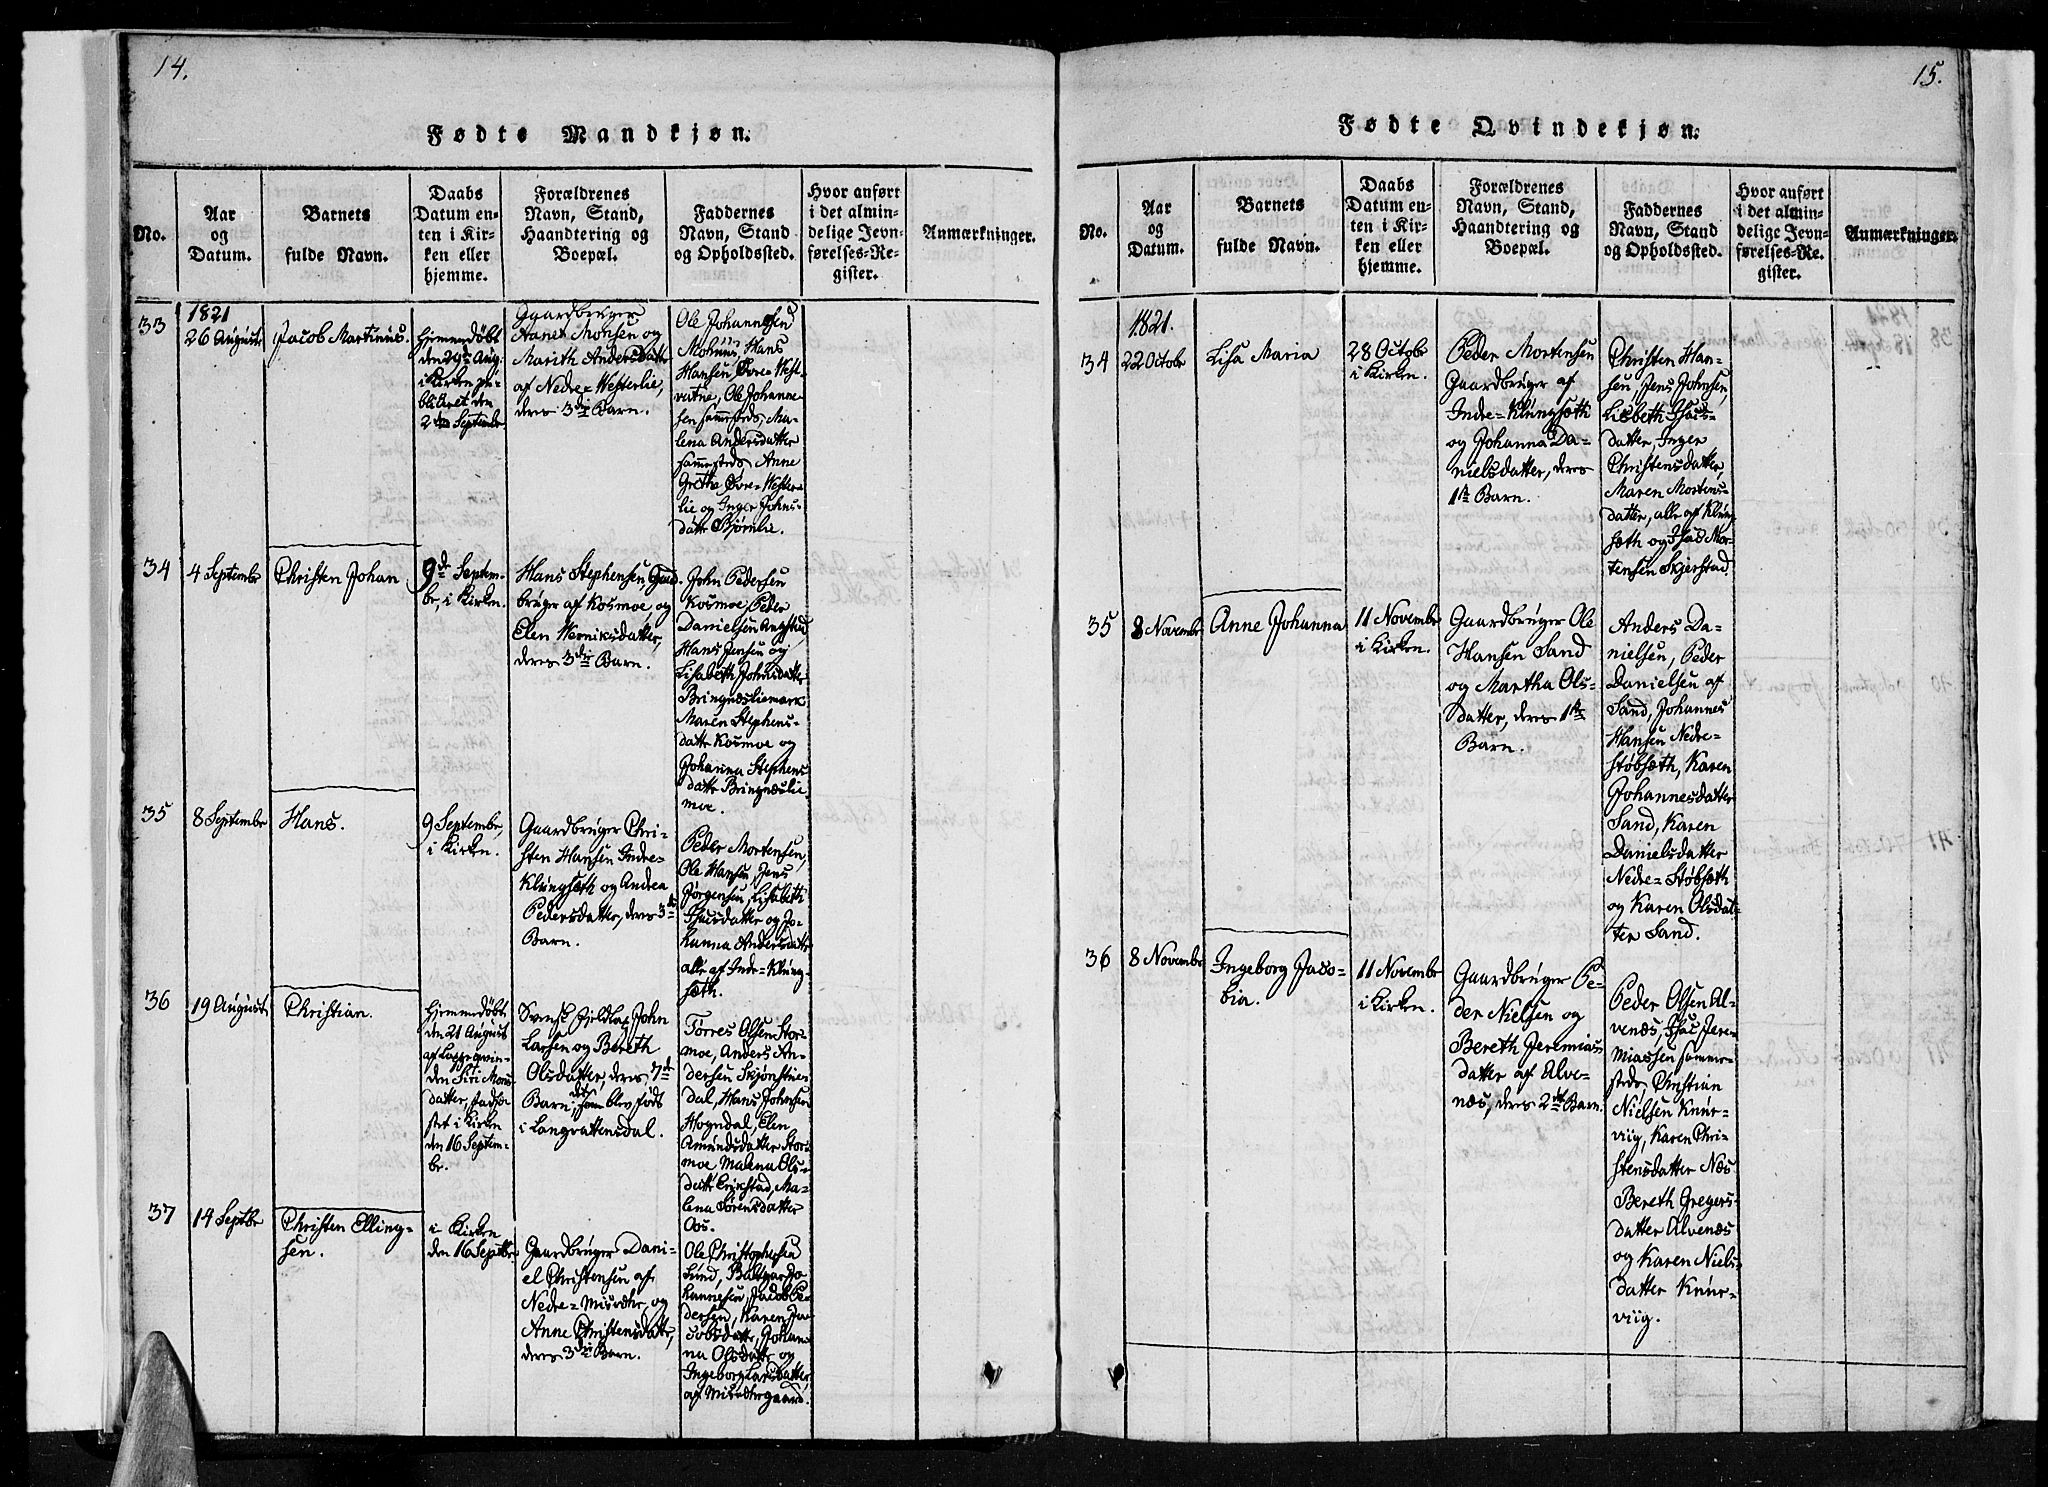 14.
Fødte Mandkjøn.
No.
Aar
og
Datum.
Barnets
fulde Navn.
Daabs
Datum en-
ten i Kir-
ken eller
hjemme.
Forældrenes
Navn, Stand,
Haandtering og
Boepæl.
Faddernes
Navn, Stand
og Opholdssted.
Hvor anført
i det almin-
delige Jevn-
førelses-Re-
gister.
Anmærkninger.
33
1821
26 August
Jacob Martinus.
Hjemmedöbt
den 29de Aug:
i Kirken pu-
bliceret den
2den Septembr
Gaardbruger
Monsen og
Marith Andersdattr
af Nedre-Westerlie,
deres 3die Barn.
Ole Johannesen
Mohuus, Hans
Hansen Øvre-West-
vatne, Ole Johanne-
sen sammesteds, Ma-
lena Andersdatter
sammesteds, Anne
Grethe Øvre-Wester-
lie og Inger Johns-
datr Bjørnlie.
34
4 Septembr
Christen Johan
9de Septem-
br, i Kirken.
Hans Stephensen, Gaard-
bruger af Kosmoe, og
Elen Werniksdatter,
deres 3die Barn.
John Pedersen
Kosmoe, Peder
Danielsen Angstad
Hans Jensen og
Lisabeth Johnsdatter
Bringnesliemark
Maren Stephens-
datr Kosmoe og
Johanna Stephens
datr Bringneslie
moe.
35
8 Septembr
Hans.
9 Septembr
i Kirken.
Gaardbruger Chri-
sten Hansen Indre-
Klungsæth og Andrea
Pedersdatter, deres 3de
Barn.
Peder Mortensen,
Ole Hansen, Jens
Jørgensen, Lisabeth
Isacsdatter og Jo-
hanna Andersdattr
alle af Indre-Klung-
sæth.
36
19 August
Christian.
Hjemmedöbt
den 21 August
af Lappqvin-
den Siri Mons-
datter, stadfæ-
stet i Kirken
den 16 Septem-
br.
Svensk Fjeldlap John
Larsen og Bereth
Olsdatter, deres 7de
Barn, som blev født
i Langvattensdal.
Torres Olsen Stor-
moe, Anders An-
dersen Skjønstue-
dal, Hans Johnsen
Hogndal, Elen
Amundsdatter Stor-
moe Malena Ols-
datr Erikstad, Ma-
lena Sørensdatter
Oos.
37
14 Septbr
Christen Elling-
sen.
i Kirken
den 16 Septbr
Gaardbruger Dani-
el Christensen af
Nedre-Misvær, og
Anne Christensdattr,
deres 3die Barn.
Ole Christophersen
Lund, Baltzar Jo-
hannesen, Jacob Pe-
dersen, Karen Ja-
cobsdattr, Johan-
na Olsdattr og
Ingeborg Larsdatter,
af Misværgaard.
15.
Fødte Qvindekjøn.
No.
Aar
og
Datum.
Barnets
fulde Navn.
Daabs
Datum en-
ten i Kir-
ken eller
hjemme.
Forældrenes
Navn, Stand,
Haandtering og
Boepæl.
Faddernes
Navn, Stand
og Opholdssted.
Hvor anført
i det almin-
delige Jevn-
førelses-Re-
gister.
Anmærkninger.
34
1821.
22 Octobr
Lisa Maria
28 Octobr
i Kirken.
Peder Mortensen
Gaardbruger af
Indre-Klungsæth
og Johanna Da-
nielsdatter, deres
1ste Barn.
Christen Han-
sen, Jens Johnsen,
Lisbeth Isacs-
datter, Inger
Christensdatter,
Maren Mortens-
datter, alle af Klung-
sæth og Isac Mor-
tensen Skjerstad.
35
8 Novembr
Anne Johanna
11 Novembr
i Kirken.
Gaardbruger Ole
Hansen Sand
og Martha Ols-
datter, deres 1ste
Barn.
Anders Da-
nielsen, Peder
Danielsen af
Sand, Johannes
Hansen Nedre-
støbsæth, Karen
Johannesdatter
Sand, Karen
Danielsdatter
Nedre-Støbsæth
og Karen Olsdat-
ter Sand.
36
8 Novembr
Ingeborg Jaco-
bia.
11 Novembr
i Kirken.
Gaardbruger Pe-
der Nielsen og
Bereth Jeremias
datter af Alve-
næs, deres 2det Barn.
Peder Olsen Al-
venæs, Isac Jere-
miassen samme-
steds, Christian
Nielsen Knur-
viig, Karen Chri-
stensdatter Næs
Bereth Gregers-
datter Alvenæs
og Karen Niels-
datter Knur-
viig.